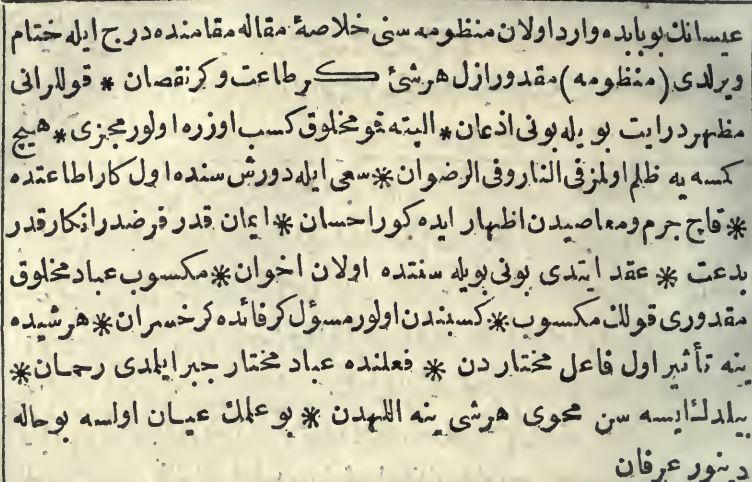 عیسانك بو بابده وارد اولان منظومه سنی خلاصهٔ مقاله مقامنده درج ایله ختام
ویرلدی (منظومه) مقدور ازل هر شئ كر طاعت و كر نقصان * قوللرانی
مظهر درایت بو یله بونی اذعان * البته شو مخلوق كسب اوزره اولور مجزی * هیچ
كسه یه ظلم اولمز فی النار و فی الرضوان * سعی ایله دورش سنده اول كار اطاعتده
* قاچ جرم ومعاصیدن اظهار ایده كور احسان * ایمان قدر فرضدر انكار قدر
بدعت * عقد ایتدی بونی بویله سنتده اولان اخوان * مكسوب عباد مخلوق
مقدوری قولك مكسوب * كسبندن اولور مسؤل كر فائده كر خسران * هر شیده
ینه تأثیر اول فاعل مختاردن * فعلنده عباد مختار جبر ایلدی رحمان *
بیلدك ایسه سن محوی هر شی ینه اللهدن * بو علمك عیان اولسه بو حاله
دینور عرفان